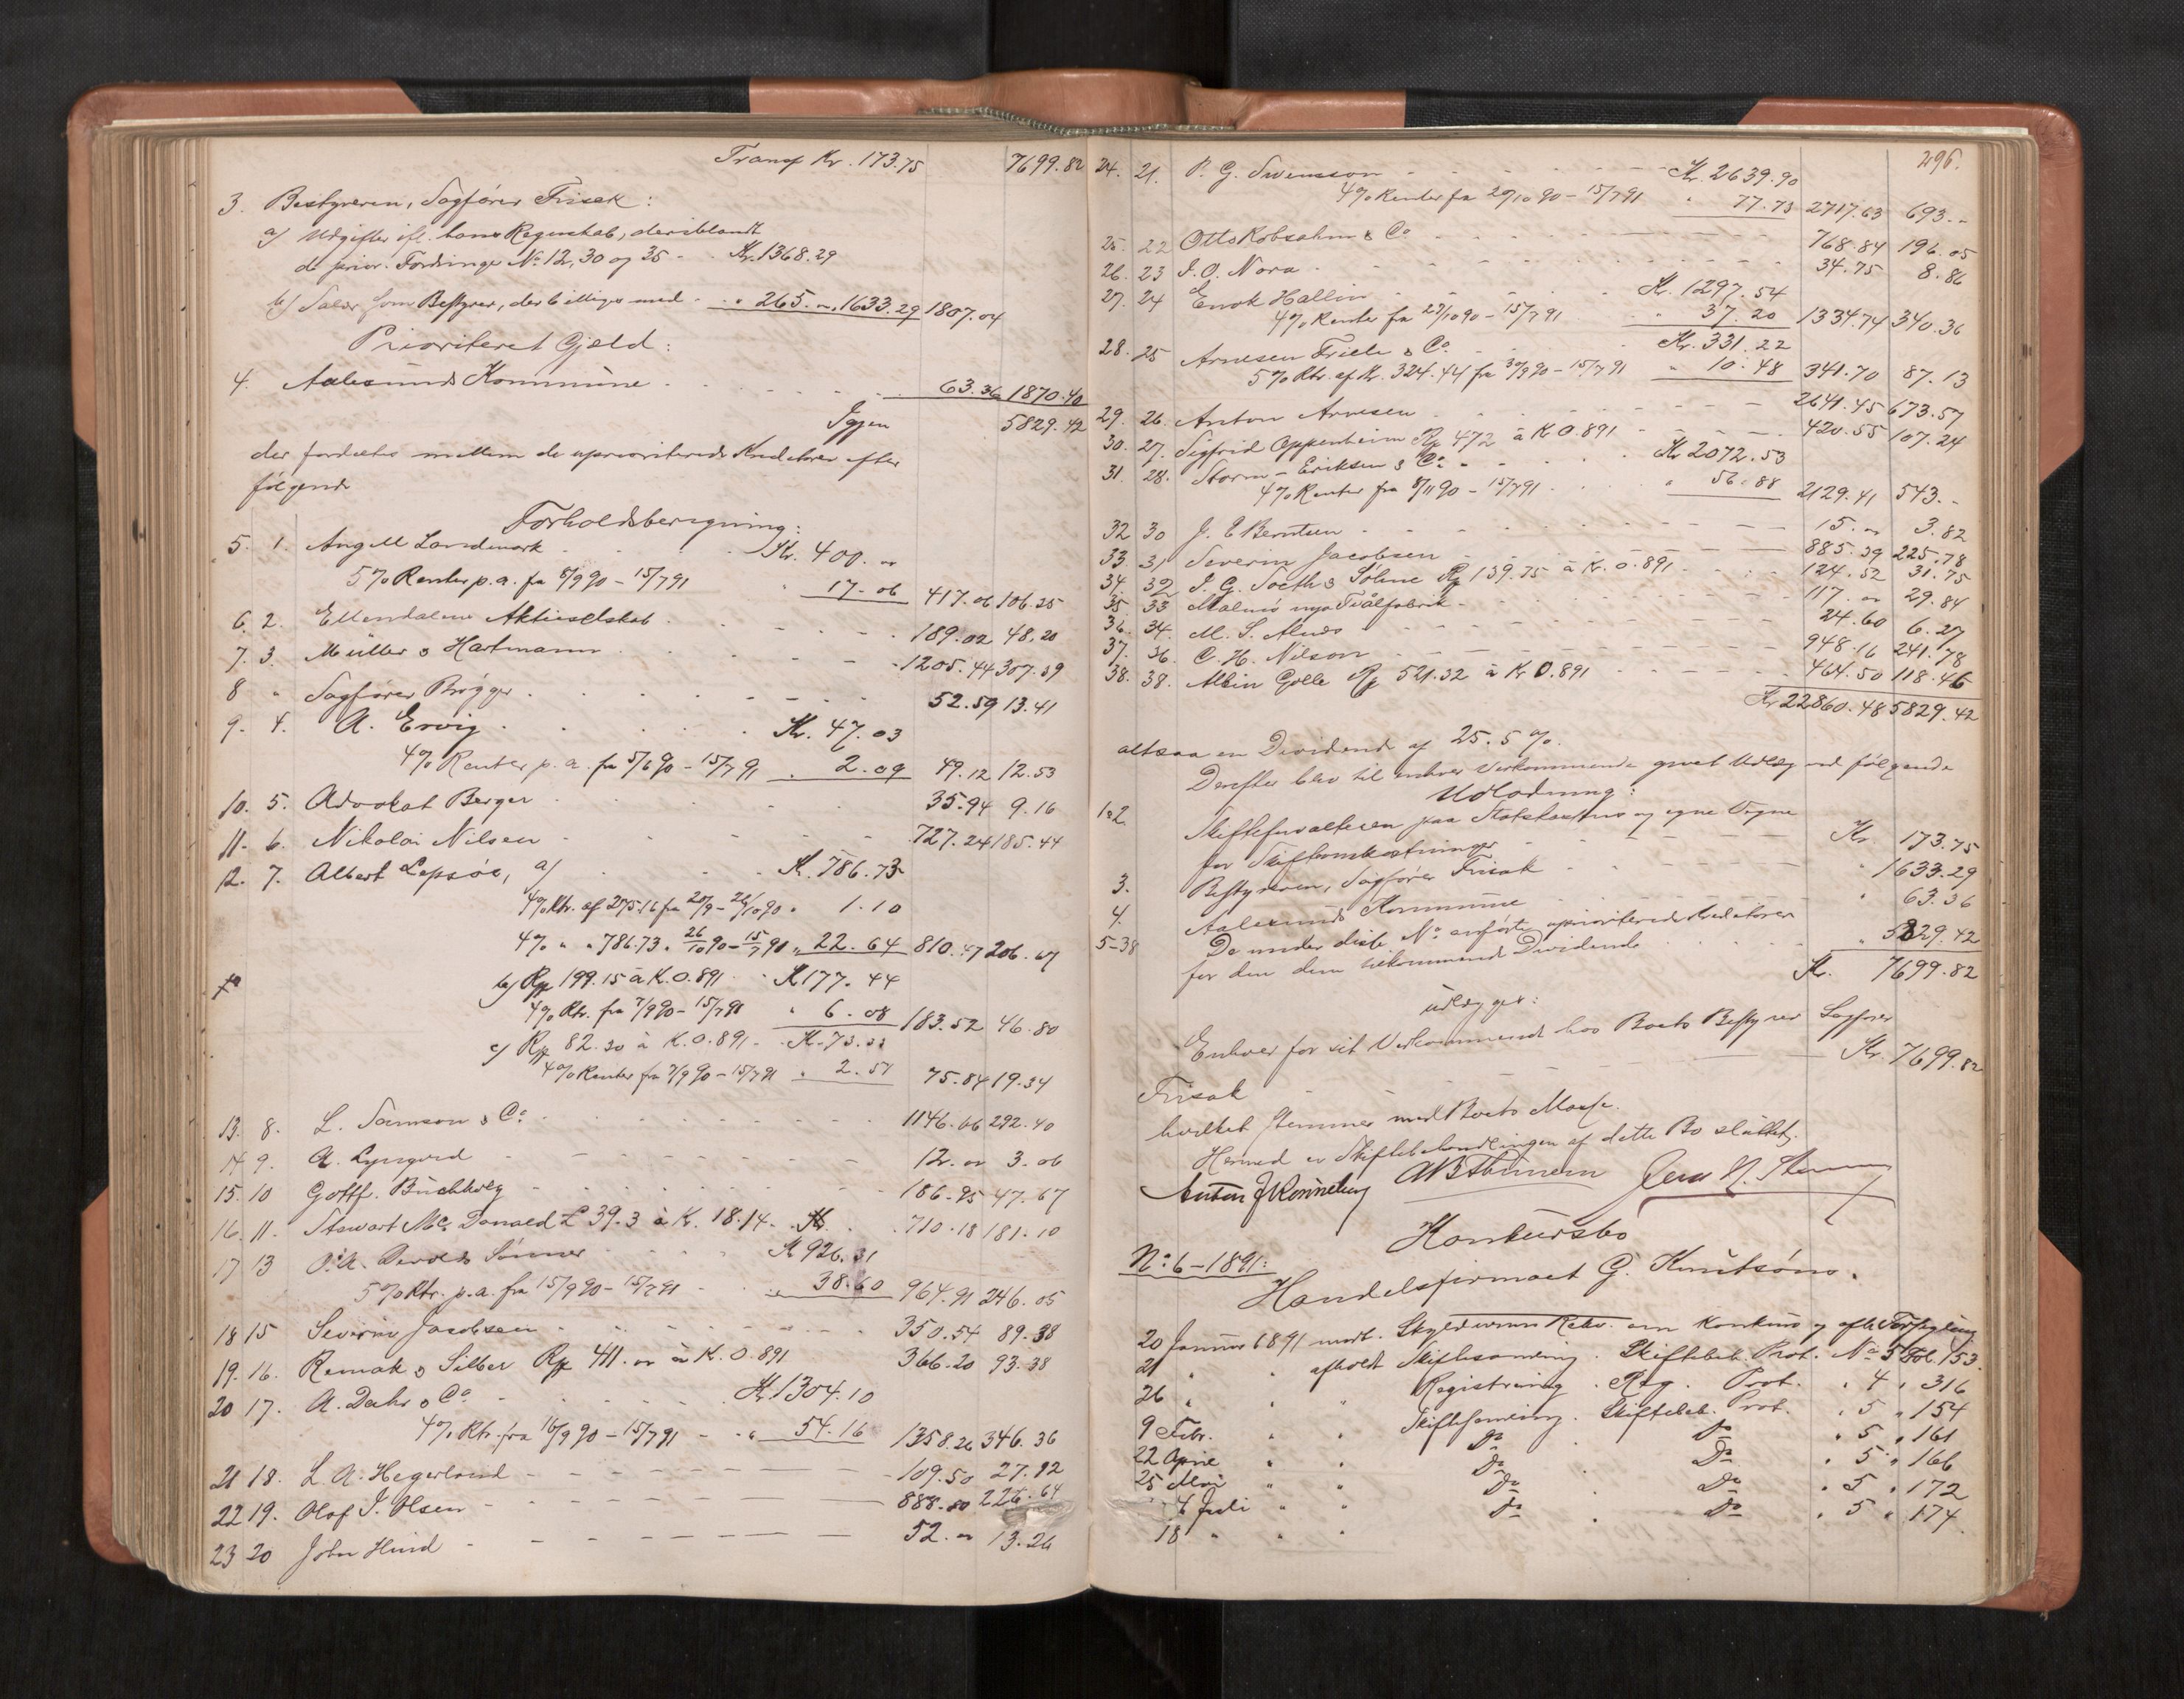 Transf Kr. 173.75 7699.82
3. Bestyreren, Sagfører Frisak:
a) Udgifter ifl. hans Regnskab, deriblandt
de prior. Fordringer No 12, 30 og 35 - Kr. 1368.29
b) Salær som Bestyrer, der billiges med - " 265. " 1633.29 1807.04
Prioriteret Gjæld:
4. Aalesunds Kommune 63.36 1870.40
Igjen 5829.42
der fordeles mellem de uprioriterede Kreditorer efter
følgende
Forholdsberegning:
5. 1. Angell Landmark Kr. 400. "
5% Renter p.a. fra 8/9 90 - 15/7 91 " 17.06 417.06 106.35
6. 2. Ellendalens Aktieselskab 189.02 48.20
7. 3. Müller & Hartmann 1205.44 307.39
8 " Sagfører Brøgger 52.59 13.41
9. 4. A. Ervig Kr. 47.03
4% Renter p.a. fra 5/6 90 - 15/7 91 " 2.09 49.12 12.53
10. 5. Advokat Berger 35.94 9.16
11. 6. Nikolai Nilsen 727.24 185.44
12. 7. Albert Lepsøe, a) K. 786.73
4% Rtr. af 275.16 fra 20/9 - 26/10 90 " 1.10
4% " " 786.73 " 26/10 90 - 15/7 91 " 22.64 810.47 206.67
b) Rp 199.15 à K. 0.891 K 177.44
4% Rtr. fra 7/9 90 - 15/7 91 " 6.08 183.52 46.80
c) Rp 82.30 à K. 0.891 - K. 73.33
4% Renter fra 7/9 90 - 15/7 91 " 2.51 75.84 19.34
13. 8. L. Samson & Co 1146.66 292.40
14 9. A. Lyngved 12. " 3.06
15. 10 Gottf. Buchholz 186.95 47.67
16. 11. Stewart Mc Donald £ 39.3 à K. 18.14 710.18 181.10
17 13 O. A. Devolds Sønner K 926.31
5% Rtr. p.a. fra 15/9 90 - 15/7 91 38.60 964.91 246.05
18 15 Severin Jacobsen 350.54 89.38
19. 16. Remak & Silber Rp 411. " à K. 0.891 366.20 93.38
20 17. A. Dahr & Co Kr. 1304.10
4% Rtr. fra 16/9 90 - 15/7 91 - " 54.16 1358.26 346.36
21 18. L. A. Hegerland 109.50 27.92
22 19. Olof J. Olsen 888.80 226.64
23 20 John Hind 52. " 13.26
296.
24. 21. P. G. Svensson Kr. 2639.90
4% Renter fra 20/10 90 - 15/7 91 " 77.73 2717.63 693. -
25. 22 Otto Robsahm & Co 768.84 196.05
26. 23 J. O. Nora 34.75 8.86
27. 24 Enok Hallin Kr. 1297.54
4% Renter fra 29/10 90 - 15/7 91 " 37.20 1334.74 340.36
28. 25 Arnesen Friele & Co Kr. 331.22
5% Rtr. af Kr. 324.44 fra 30/9 90 - 15/7 91 " 10.48 341.70 87.13
29. 26. Anton Arnesen 2641.45 673.57
30. 27. Sigfrid Oppenheim Rp 472 à K 0.891 420.55 107.24
31. 28. Storm-Eriksen & Co Kr 2072.53
4% Renter fra 8/11 90 - 15/7 91 " 56.88 2129.41 543. -
32 30 J. E Berntsen 15. " 3.82
33. 31 Severin Jacobsen 885.39 225.78
34. 32 J. G. Soeth & Söhne Rp 139.75 à Kr. 0.891 124.52 31.75
35 33 Malmö nya Tvålfabrik 117. " 29.84
36. 34. M. S. Alnes 24.60 6.27
37. 36. C. H. Nilson 948.16 241.78
38. 38. Albin Golle Rp 521.32 à Kr 0.891 464.50 118.46
Kr 22860.48 5829.42
altsaa en Dividende af 25.5%.
Derefter blev til enhver Vedkommende gjort Udlæg ved følgende
Udlodning:
1-2. Skifteforvalteren paa Statskassens og egne Vegne
for Skifteomkostninger Kr 173.75
3. Bestyreren, Sagfører Frisak " 1633.29
4. Aalesunds Kommune " 63.36
5-38 De under disse No anførte uprioriterede Kreditorer
for den dem tilkommende Dividende " 5829.42
Kr. 7699.82
udlægges:
Enhver for sit Vedkommende hos Boets Bestyrer Sagfører
Frisak Kr. 7699.82
hvilket stemmer med Boets Masse.
Hermed er Skiftebehandlingen af dette Bo sluttet.
Anton J Rønneberg
Konkursbo
No 6 - 1891:
Handelsfirmaet G. Knutsøns.
20 Januar 1891 modt. Skyldnerens Rekv. om Konkurs og efter Forsegling
21 " " afholdt Skiftesamling. Skiftebeh. Prot. No 5 Fol. 153.
26 " " Registrering. Reg. Prot. " 4 " 316
9 Febr. " " Skiftesamling. Skiftebeh. Prot. " 5 " 154
22 April " " Do Do " 5 " 161
25 Mai " " Do Do " 5 " 166
4 Juli " " Do Do " 5 " 172
18 " " " Do Do " 5 " 174